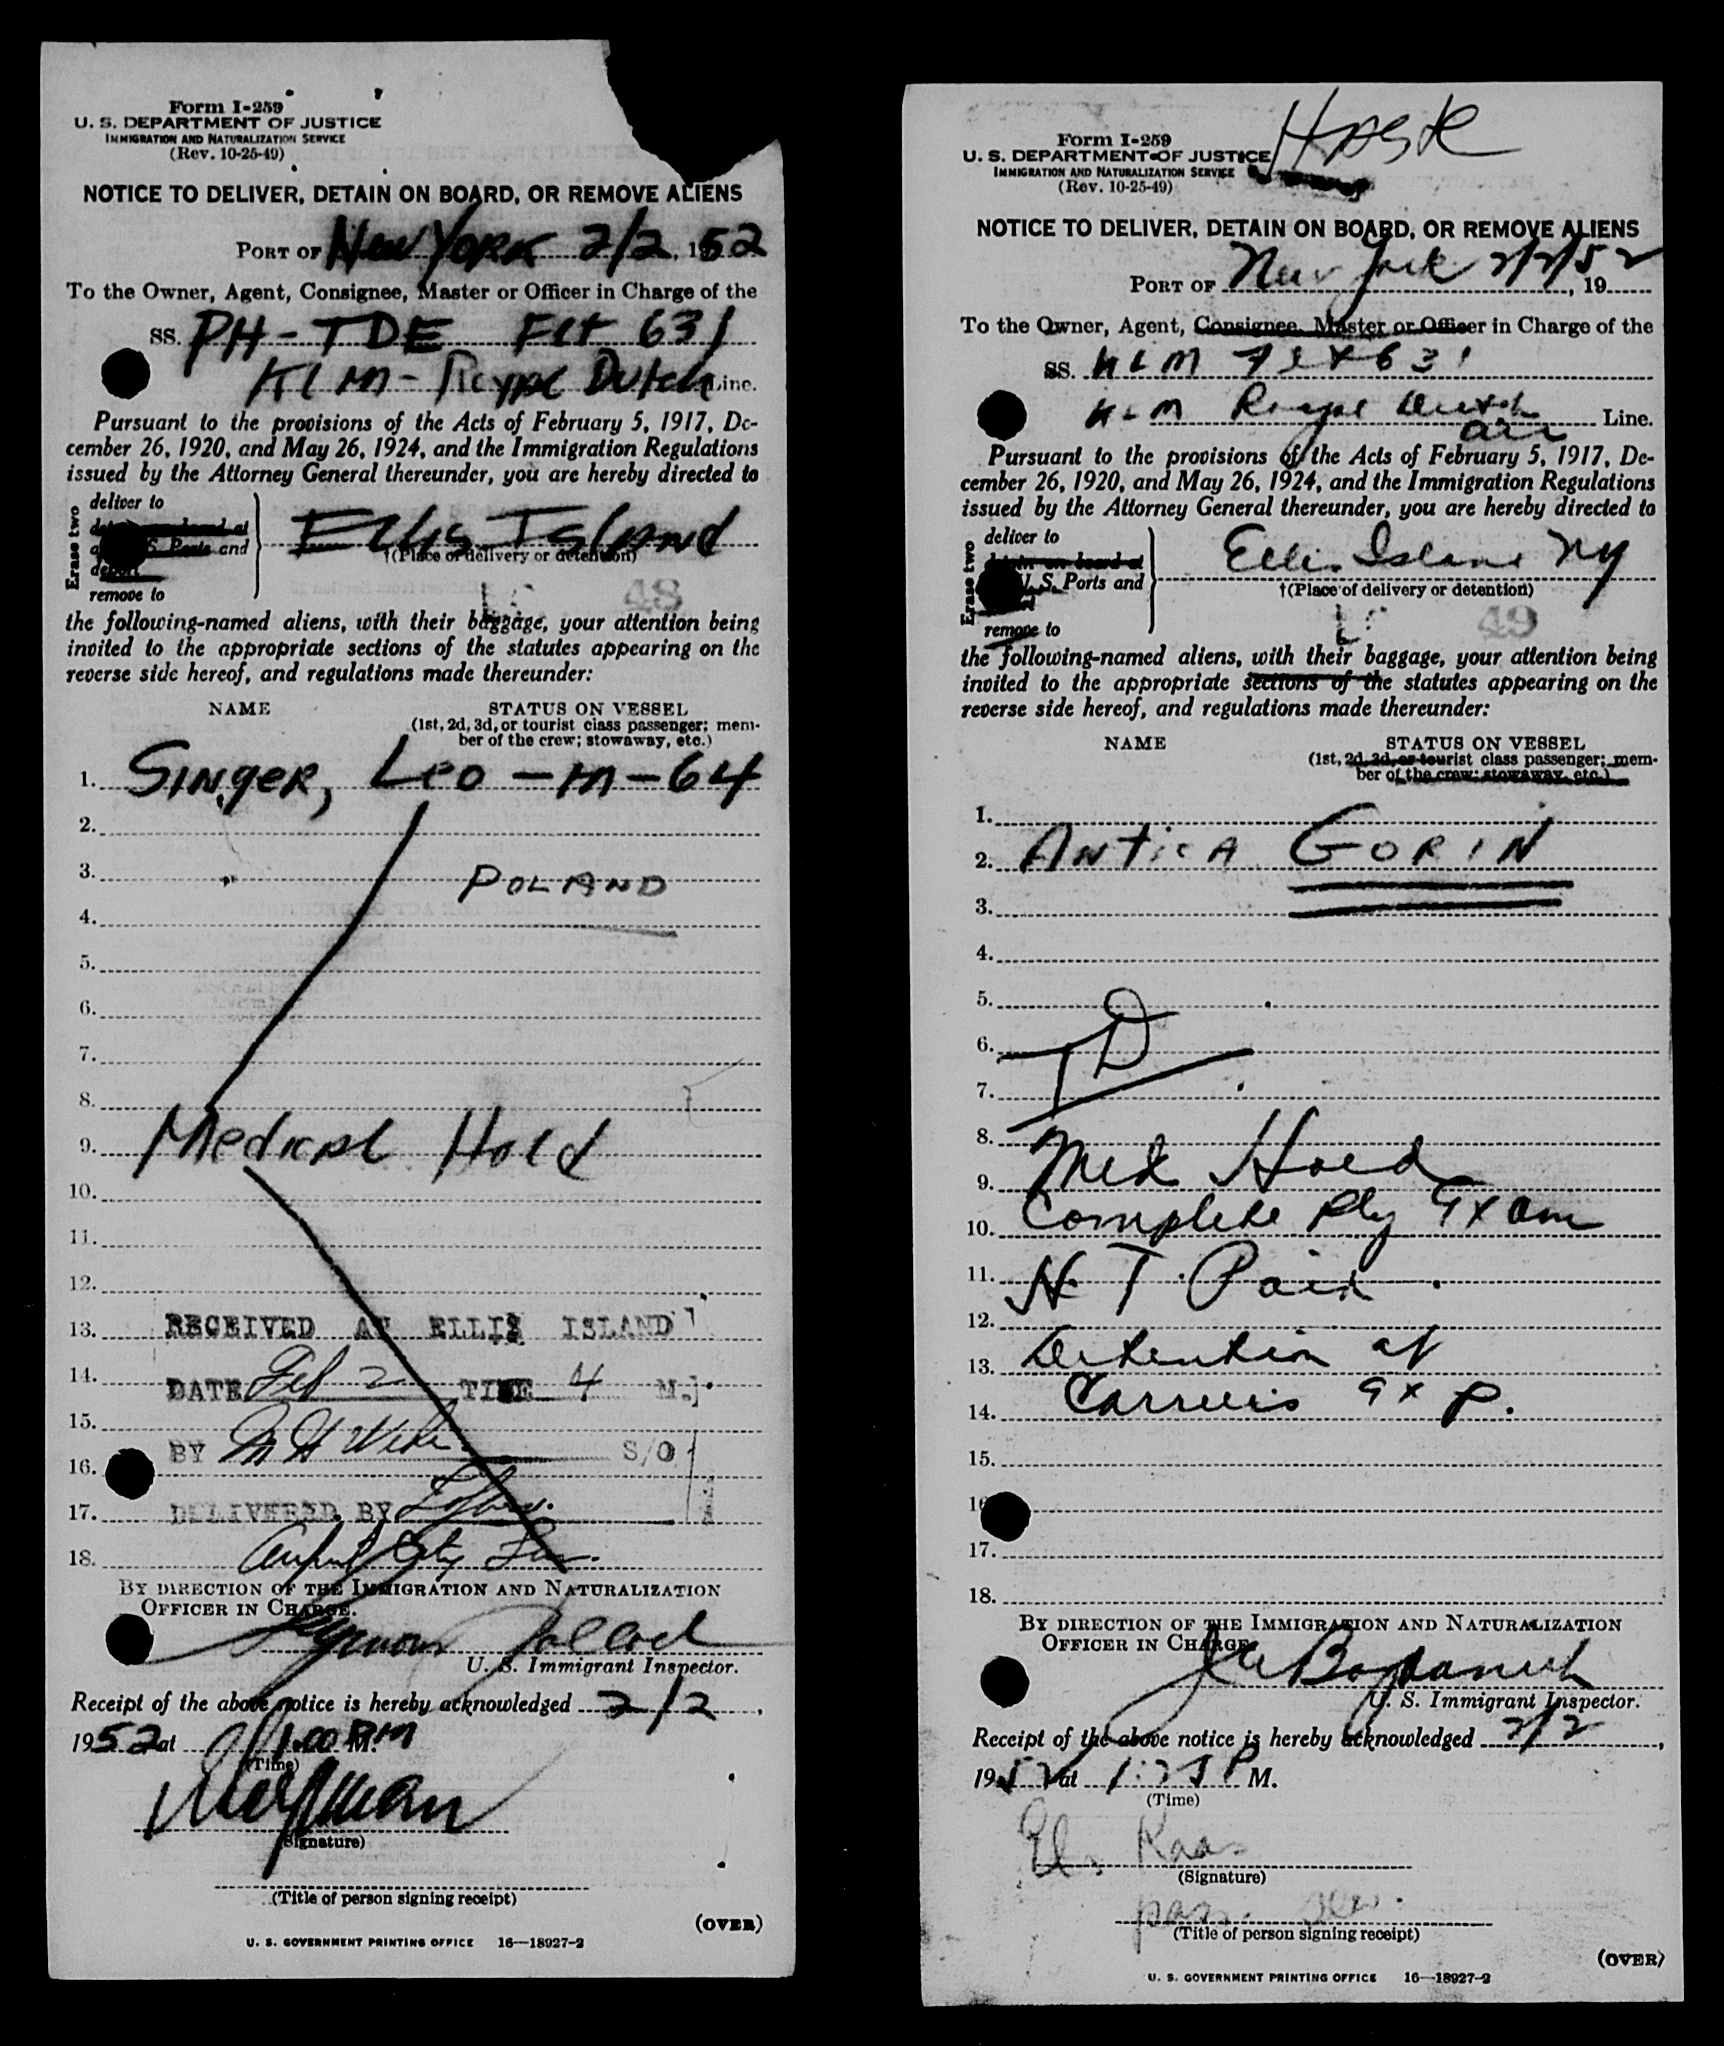 Form I-259
U. S. DEPARTMENT OF JUSTICE
IMMIGRATION AND NATURALIZATION SERVICE
(Rev. 10-25-49)
NOTICE TO DELIVER, DETAIN ON BOARD, OR REMOVE ALIENS
PORT OF New York 2/2, 1952
To the Owner, Agent, Consignee, Master or Officer in Charge of the
SS. PH-TDE Flt 631
KLM - Royal Dutch Line.
Pursuant to the provisions of the Acts of February 5, 1917, De-
cember 26, 1920, and May 26, 1924, and the Immigration Regulations
issued by the Attorney General thereunder, you are hereby directed to
Erase two
deliver to
S. Ports and
remove to
Ellis Island
†(Place of delivery or detention)
48
the following-named aliens, with their baggage, your attention being
invited to the appropriate sections of the statutes appearing on the
reverse side hereof, and regulations made thereunder:
NAME STATUS ON VESSEL
(1st, 2d, 3d, or tourist class passenger; mem-
ber of the crew; stowaway, etc.)
1. Singer, Leo - m - 64
2.
3. POLAND
4.
5.
6.
7.
8.
9. Medical Hold
10.
11.
12.
13. RECEIVED AT ELLIS ISLAND
14. DATE Feb 2 TIME 4 M.
15.
BY S/O
16.
17. DELIVERED BY
18.
BY DIRECTION OF THE IMMIGRATION AND NATURALIZATION
OFFICER IN CHARGE.
Seymour Pollock
U. S. Immigrant Inspector.
Receipt of the above notice is hereby acknowledged 2/2,
1952 at 1:00 PM M.
(Time)
(Signature)
(Title of person signing receipt)
(OVER)
U. S. GOVERNMENT PRINTING OFFICE 16—18927-2
Form I-259
U. S. DEPARTMENT OF JUSTICE
IMMIGRATION AND NATURALIZATION SERVICE
(Rev. 10-25-49)
NOTICE TO DELIVER, DETAIN ON BOARD, OR REMOVE ALIENS
PORT OF New York 2/2/52, 19
To the Owner, Agent, Consignee, Master or Officer in Charge of the
SS. KLM Flt 631
KLM Royal Dutch Line.
air
Pursuant to the provisions of the Acts of February 5, 1917, De-
cember 26, 1920, and May 26, 1924, and the Immigration Regulations
issued by the Attorney General thereunder, you are hereby directed to
Erase two
deliver to
detain on board at
U. S. Ports and
remove to
Ellis Island NY
†(Place of delivery or detention)
49
the following-named aliens, with their baggage, your attention being
invited to the appropriate sections of the statutes appearing on the
reverse side hereof, and regulations made thereunder:
NAME STATUS ON VESSEL
(1st, 2d, 3d, or tourist class passenger; mem-
ber of the crew; stowaway, etc.)
1.
2. Antica GORIN
3.
4.
5.
6. TD
7.
8.
9. Med Hold
10. Complete Phy Exam
11. H. T. Paid.
12.
13. Detention at
14. Carriers Exp.
15.
16
17.
18.
BY DIRECTION OF THE IMMIGRATION AND NATURALIZATION
OFFICER IN CHARGE
U. S. Immigrant Inspector.
Receipt of the above notice is hereby acknowledged 2/2,
1952 at 1:25 P M.
(Time)
(Signature)
(Title of person signing receipt)
(OVER)
U. S. GOVERNMENT PRINTING OFFICE 16—18927-2